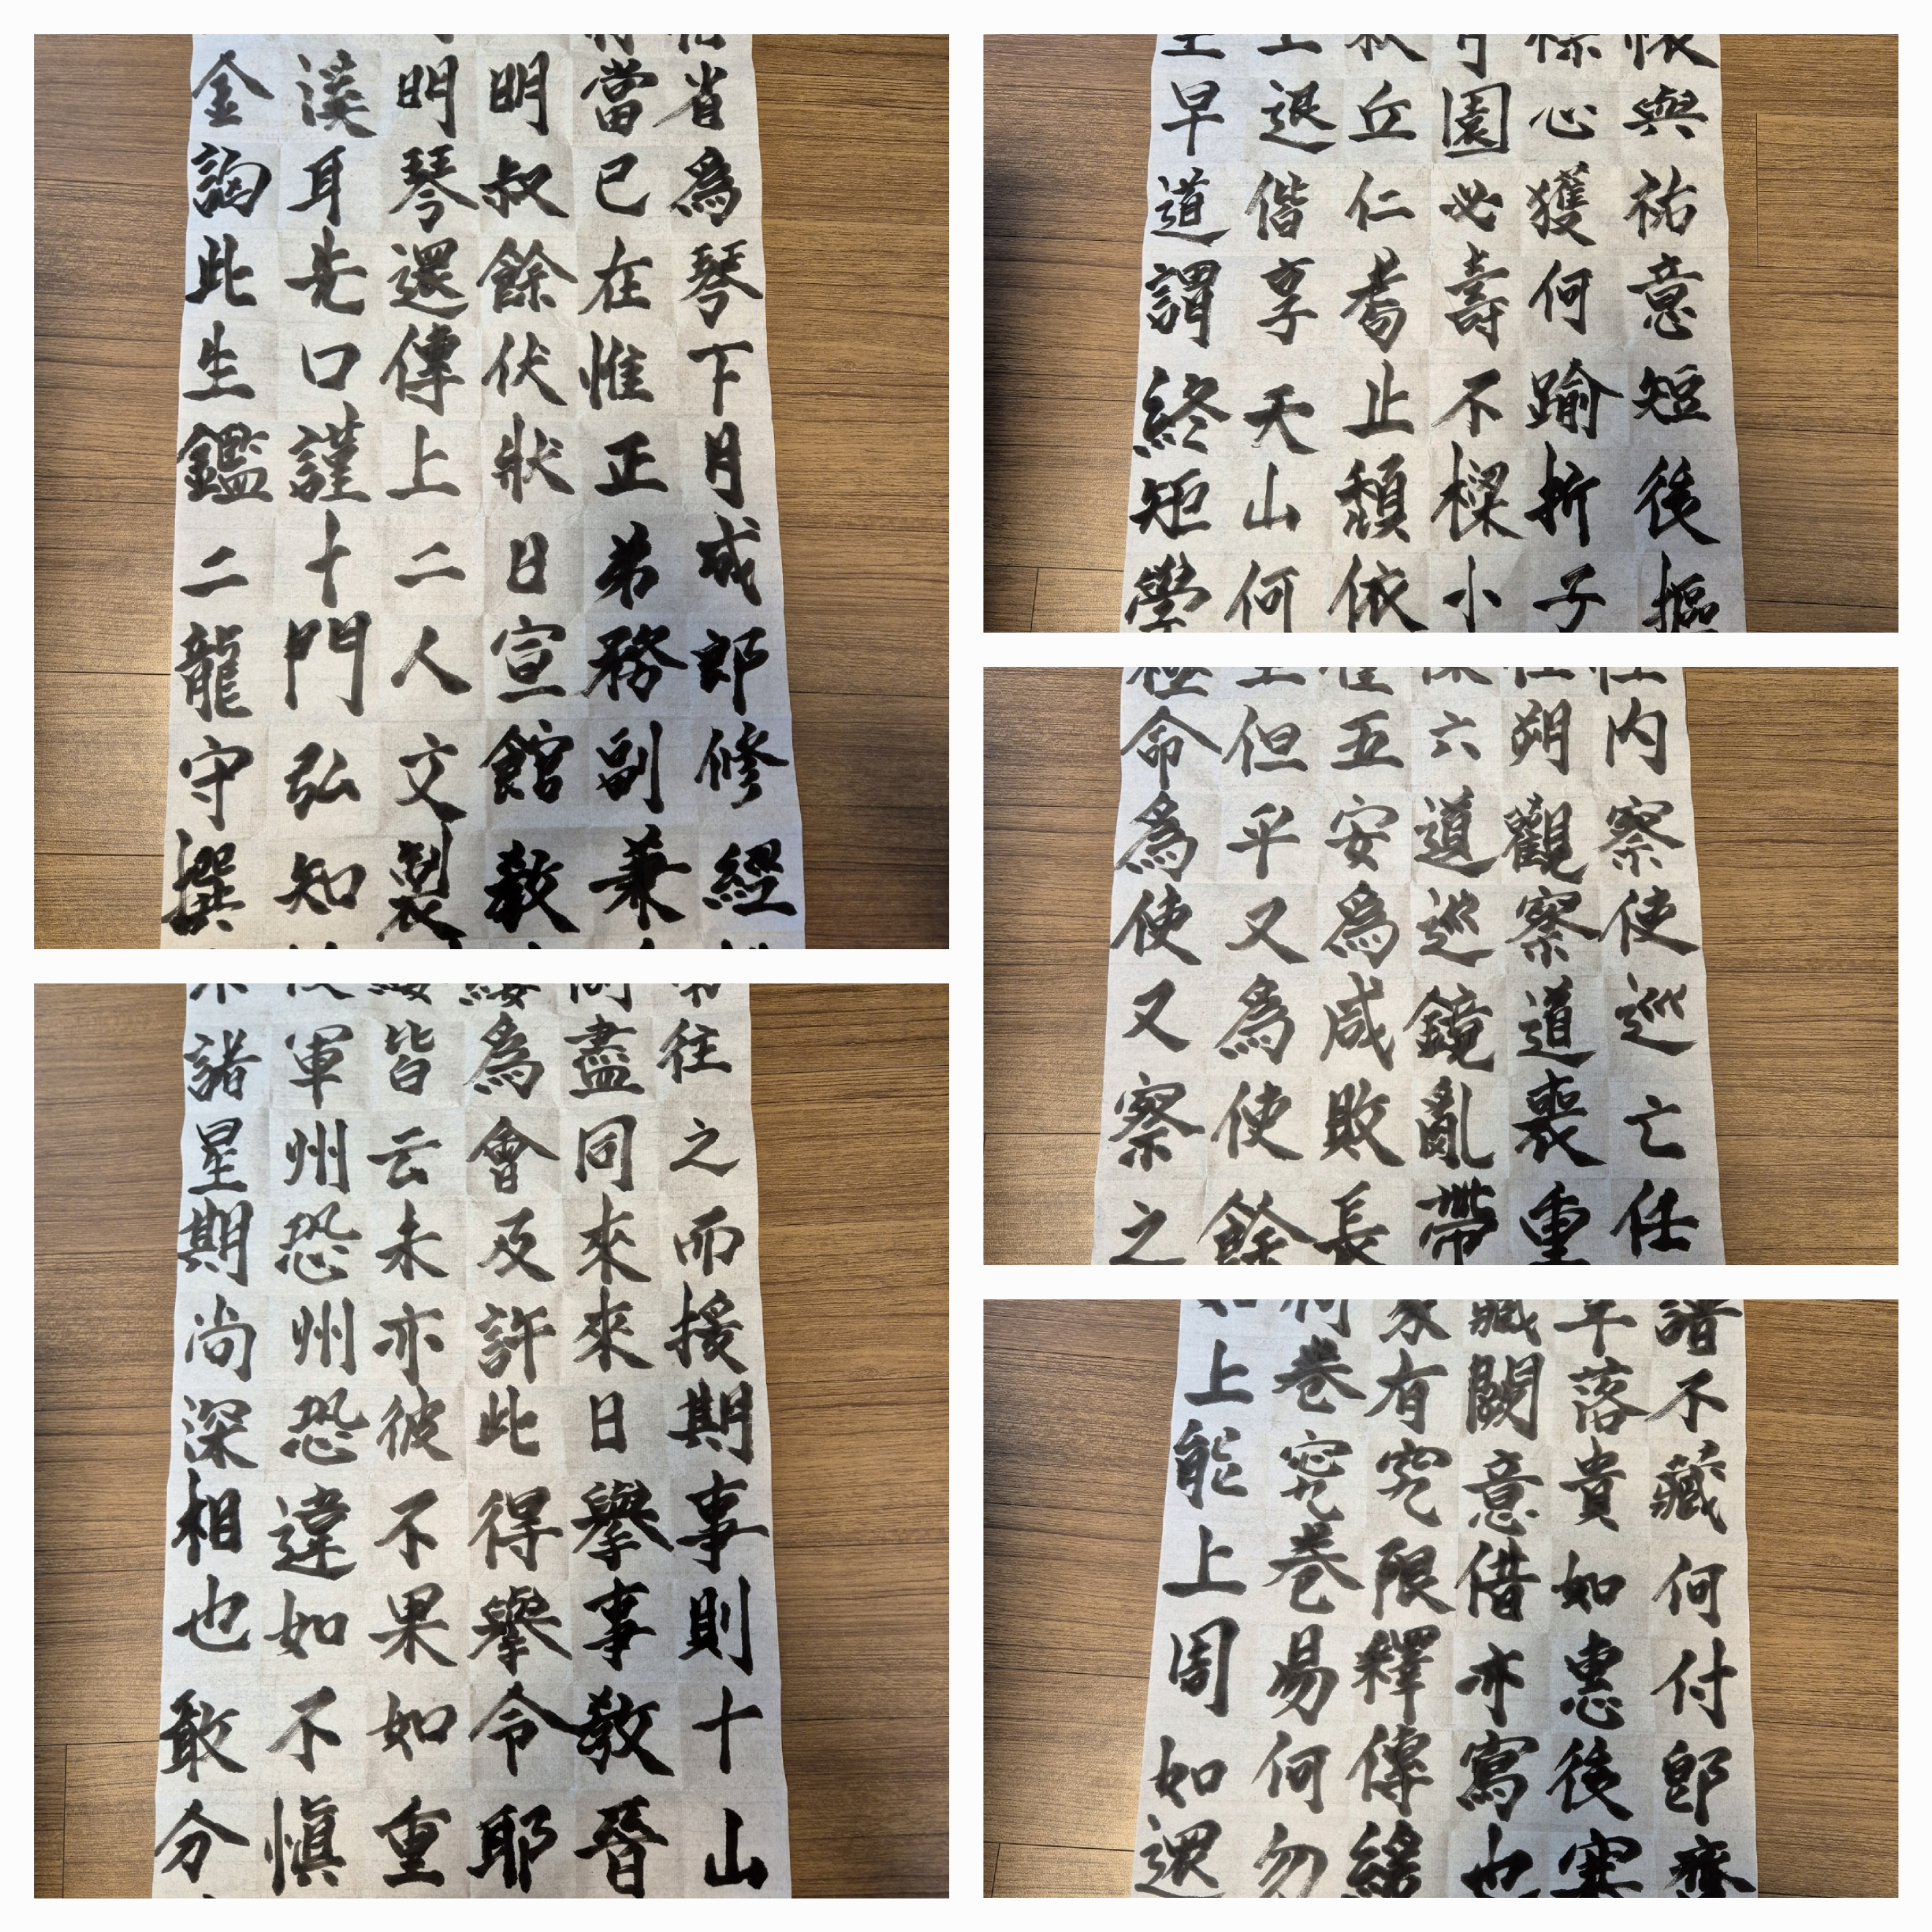 省為琴下月成郎修經
當已在惟正弟務副兼
明叔餘伏狀日宣館教
明琴還傳上二人文製
溪耳先口謹十門弘知
金詢此生鑑二龍守撰
與祐意短後摳
心獲何踰折子
園必壽不樑小
丘仁耇止頹依
退偕享天山何
早道謂終矩學
內察使巡亡任
朔觀察道喪重
六道巡鏡亂帶
五安為咸敗長
但平又為使餘
命為使又察之
往之而援期事則十山
盡同來來日舉事教晉
為會及許此得舉令耶
皆云未亦彼不果如重
軍州恐州恐違如不慎
諸星期尚深相也敢分
譜不藏何付卽齋
年落貴如惠後寒
藏闕意借亦寫也
家有究限釋傳緣
何卷究卷易何勿
上能上周如還